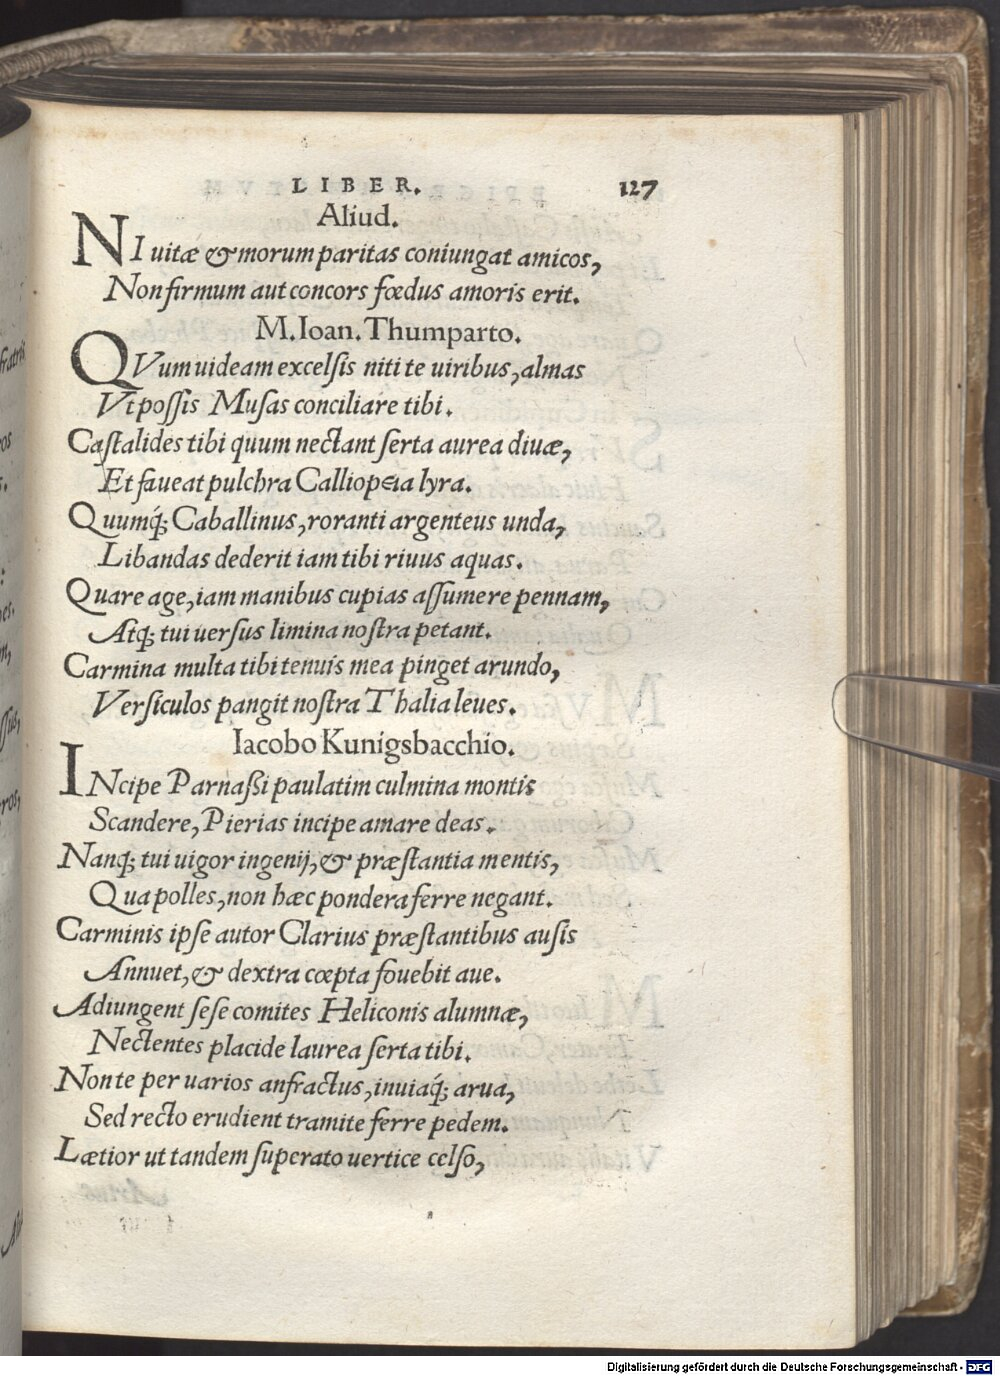 LIBER. 127
Aliud.
NI uitæ & morum paritas coniungat amicos,
Non firmum aut concors fœdus amoris erit.
M. Ioan. Thumparto.
QVum uideam excelsis niti te uiribus, almas
Vt possis Musas conciliare tibi.
Castalides tibi quum nectant serta aurea diuæ,
Et faueat pulchra Calliopeia lyra.
Quumq́; Caballinus, roranti argenteus unda,
Libandas dederit iam tibi riuus aquas.
Quare age, iam manibus cupias assumere pennam,
Atq; tui uersus limina nostra petant.
Carmina multa tibi tenuis mea pinget arundo,
Versiculos pangit nostra Thalia leues.
Iacobo Kunigsbacchio.
INcipe Parnaßi paulatim culmina montis
Scandere, Pierias incipe amare deas.
Nanq; tui uigor ingenij, & præstantia mentis,
Qua polles, non hæc pondera ferre negant.
Carminis ipse autor Clarius præstantibus ausis
Annuet, & dextra cœpta fouebit aue.
Adiungent sese comites Heliconis alumnæ,
Nectentes placide laurea serta tibi.
Non te per uarios anfractus, inuiaq́; arua,
Sed recto erudient tramite ferre pedem.
Lætior ut tandem superato uertice celso,
Digitalisierung gefördert durch die Deutsche Forschungsgemeinschaft - DFG